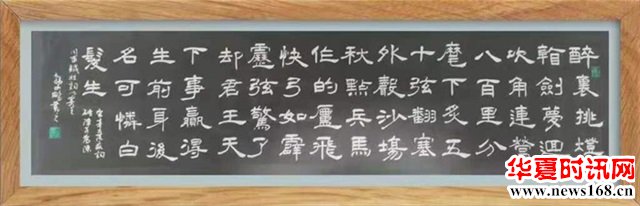 醉裏挑燈
看劍夢迴
吹角連營
八百里分
麾下炙五
十弦翻塞
外聲沙場
秋點兵馬
作的盧飛
快弓如霹
靂弦驚了
却君王天
下事贏得
生前身後
名可憐白
髮生
华夏时讯网
www.news168.cn